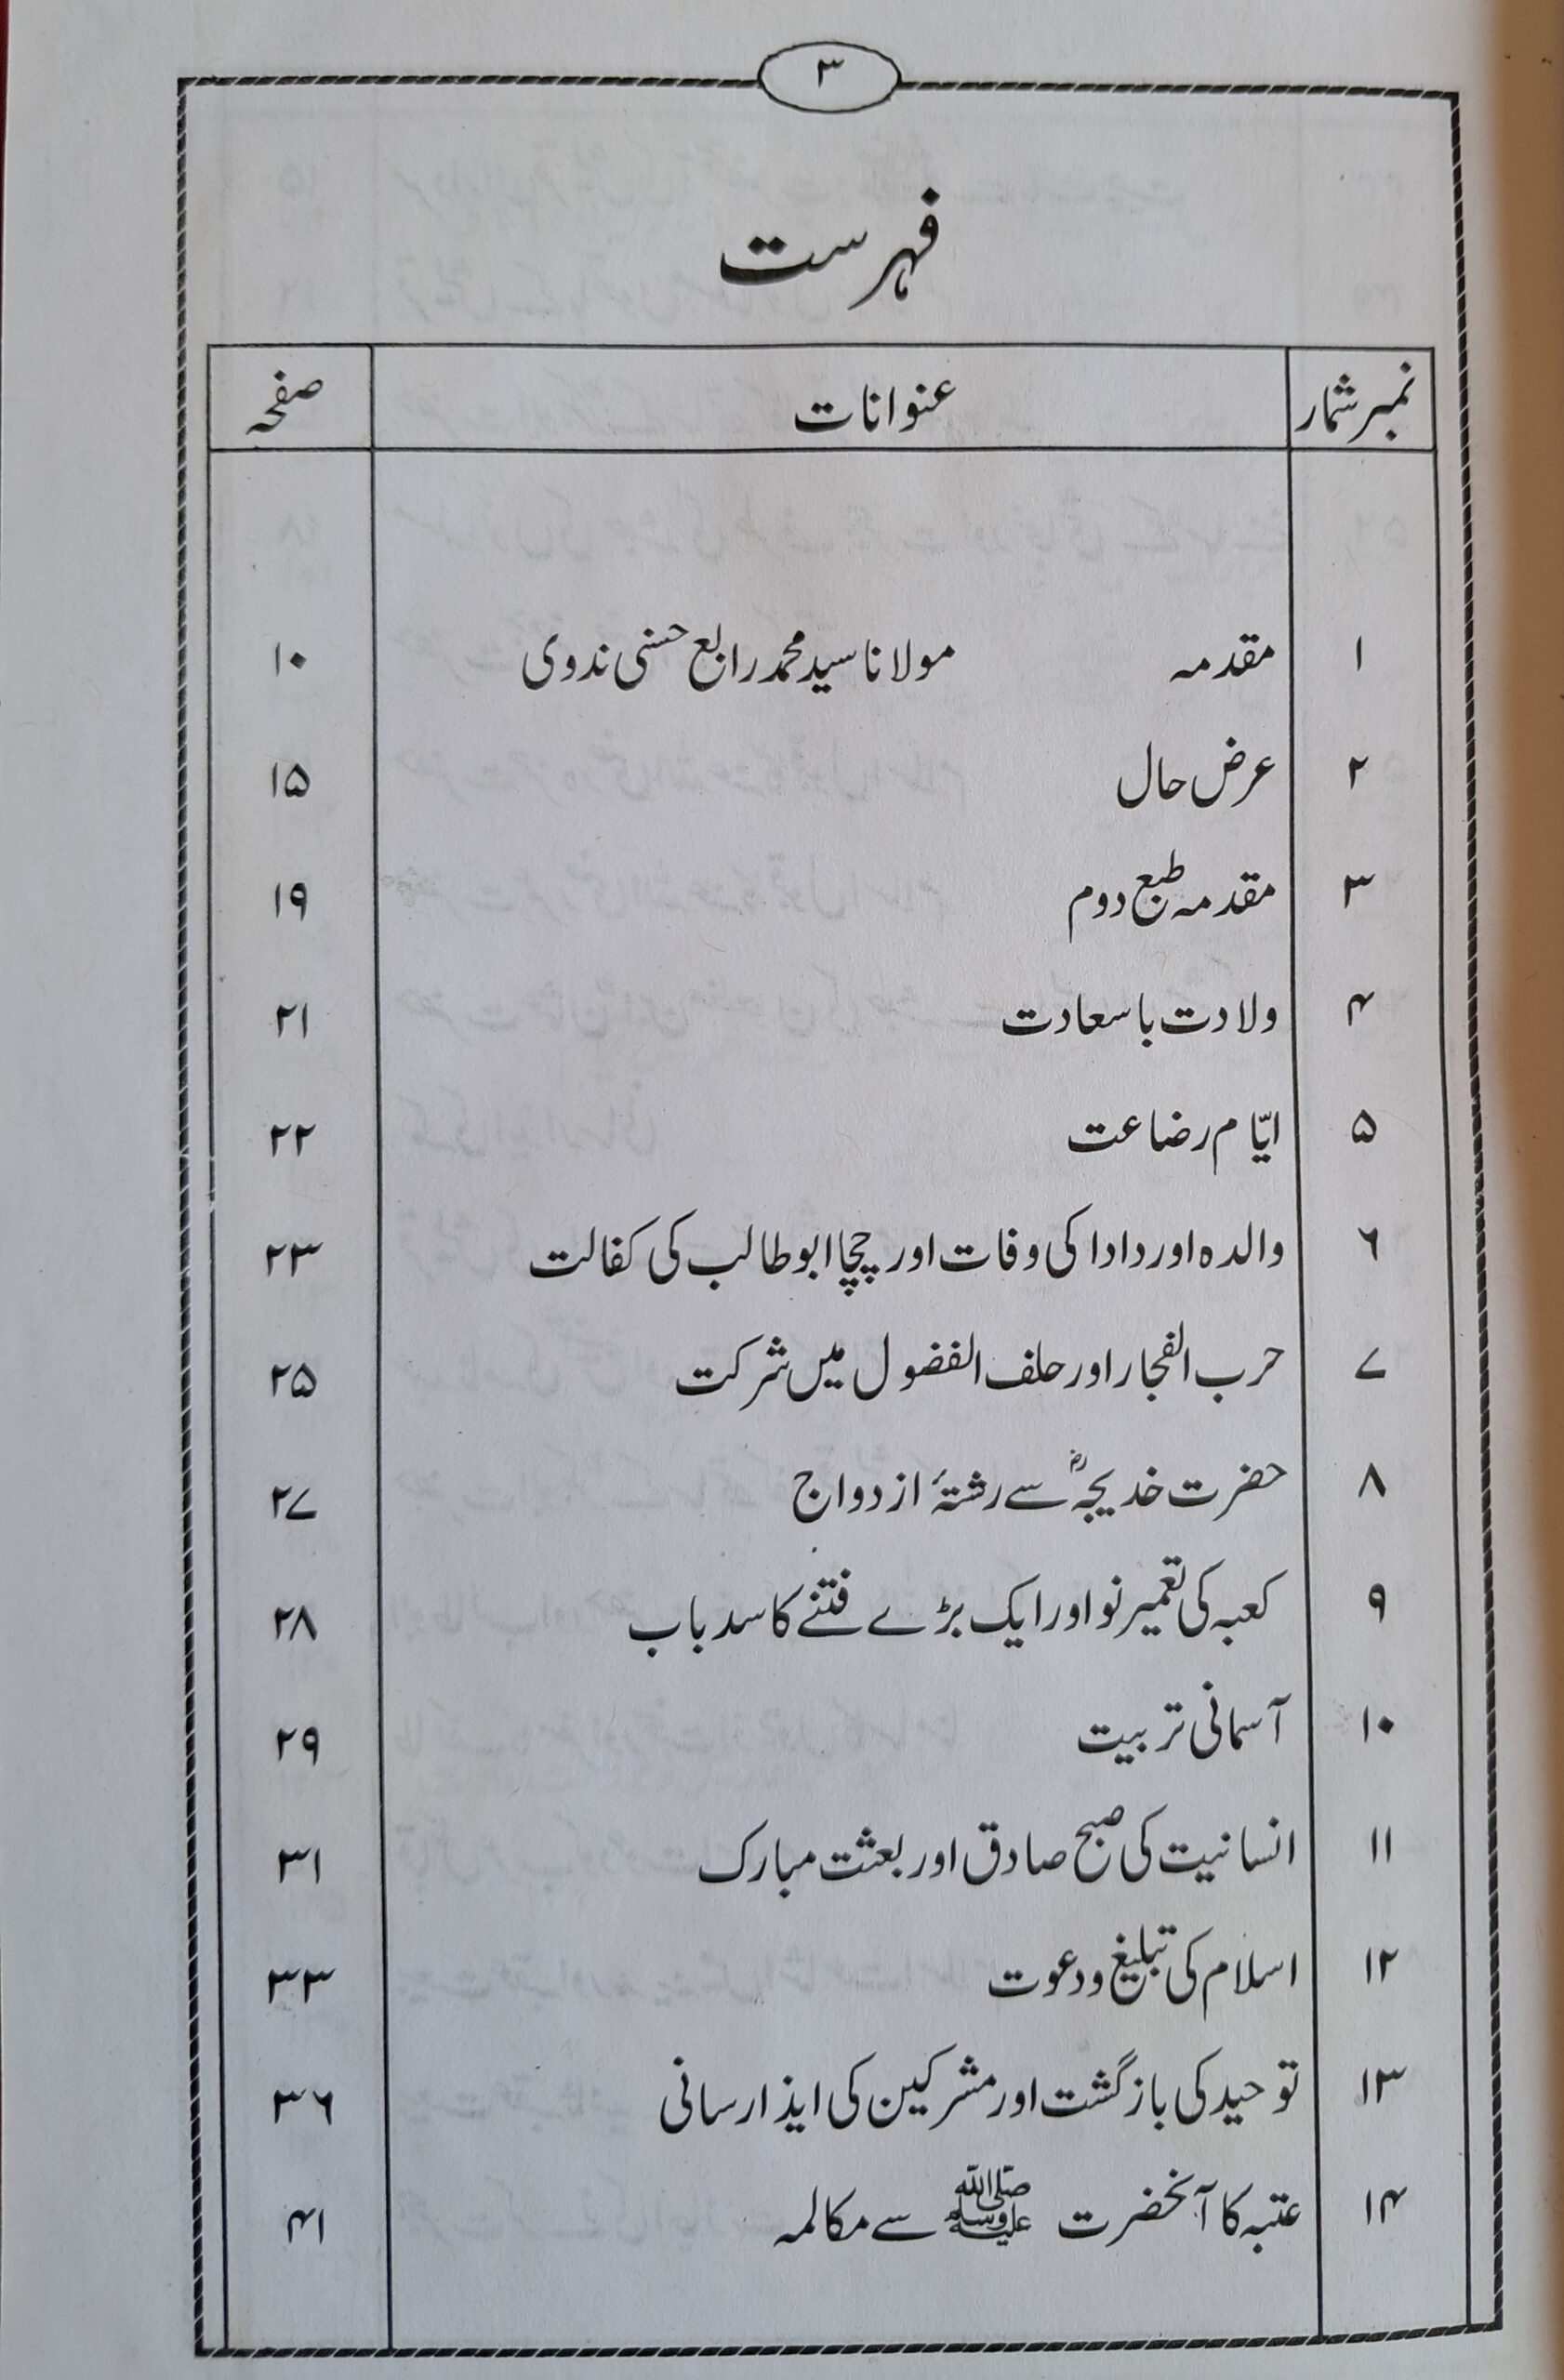 ۳
فہرست
نمبر شمار عنوانات صفحہ
۱ مقدمہ مولانا سید محمد رابع حسنی ندوی ۱۰
۲ عرض حال ۱۵
۳ مقدمہ طبع دوم ۱۹
۴ ولادت باسعادت ۲۱
۵ ایّام رضاعت ۲۲
۶ والدہ اور دادا کی وفات اور چچا ابوطالب کی کفالت ۲۳
۷ حرب الفجار اور حلف الفضول میں شرکت ۲۵
۸ حضرت خدیجہؓ سے رشتۂ ازدواج ۲۷
۹ کعبہ کی تعمیر نو اور ایک بڑے فتنے کا سد باب ۲۸
۱۰ آسمانی تربیت ۲۹
۱۱ انسانیت کی صبح صادق اور بعثت مبارک ۳۱
۱۲ اسلام کی تبلیغ و دعوت ۳۳
۱۳ توحید کی بازگشت اور مشرکین کی ایذا رسانی ۳۶
۱۴ عتبہ کا آنحضرت ﷺ سے مکالمہ ۴۱